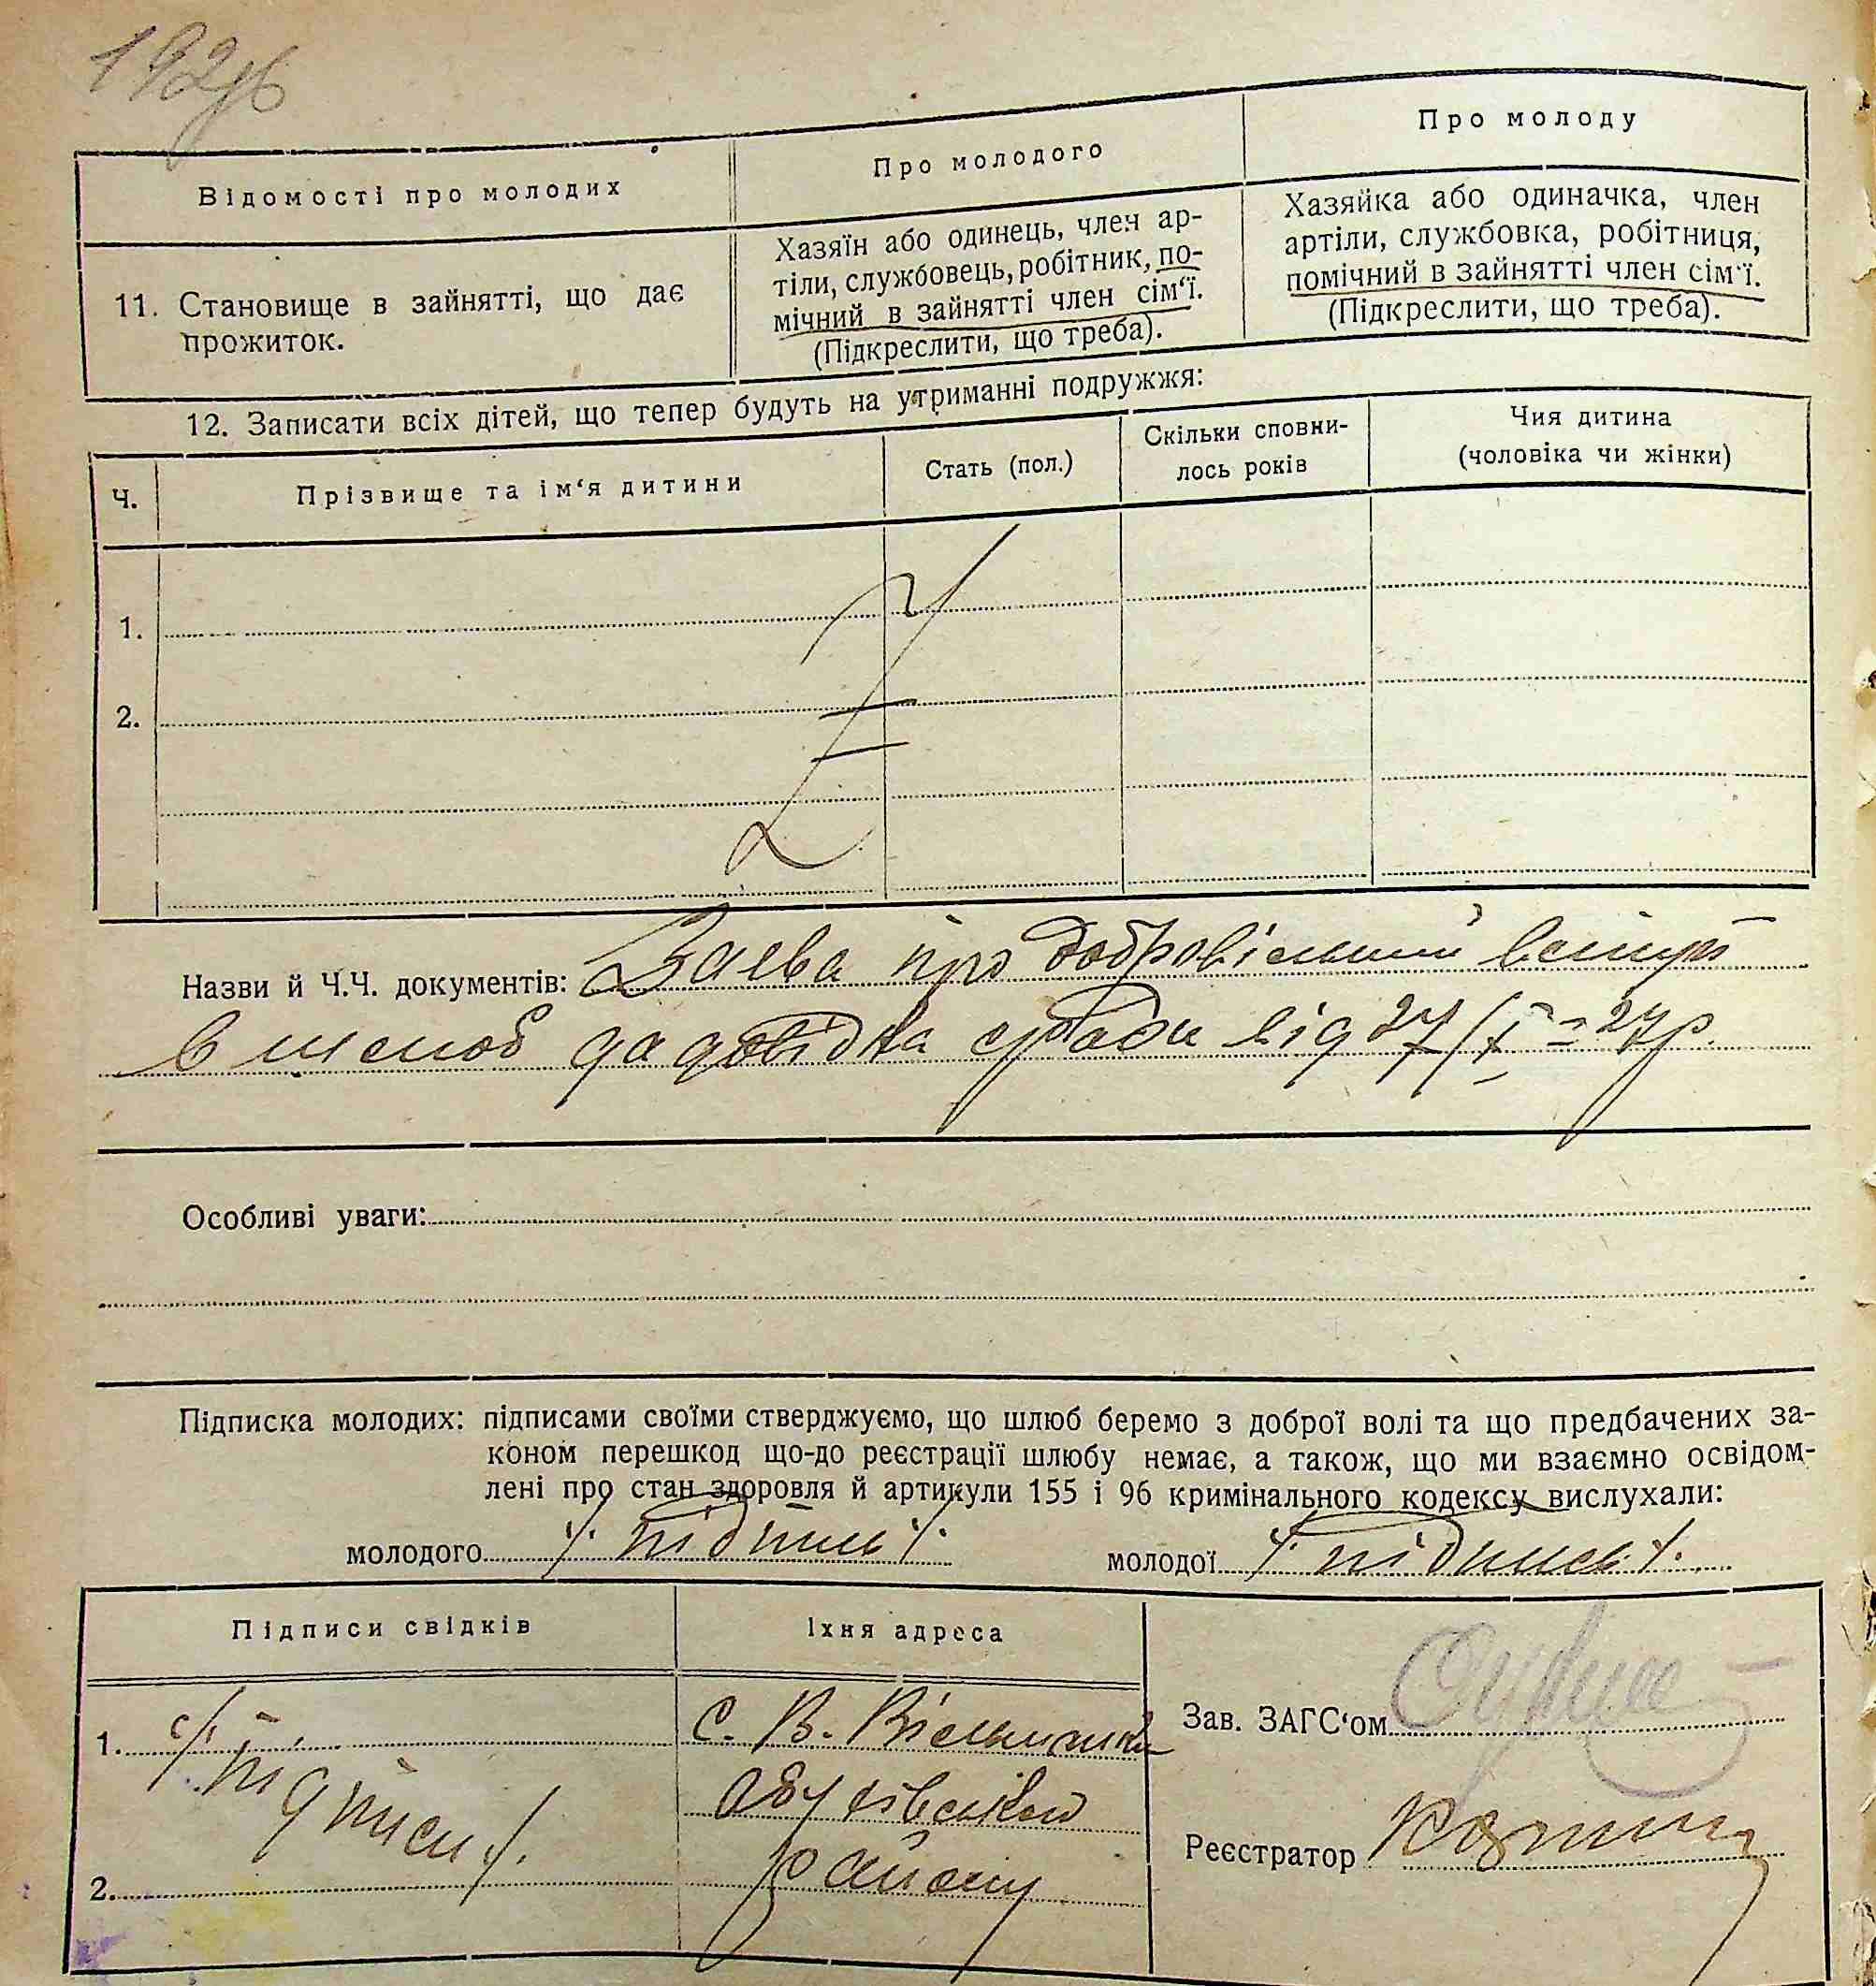 Відомості про молодих
Про молодого
Про молоду
11. Становище в зайнятті, що дає
прожиток.
Хазяїн або одинець, член ар-
тіли, службовець, робітник, по-
мічний в зайнятті член сім‘ї.
(Підкреслити, що треба).
Хазяйка або одиначка, член
артіли, службовка, робітниця,
помічний в зайнятті член сім‘ї.
(Підкреслити, що треба).
12. Записати всіх дітей, що тепер будуть на утриманні подружжя:
Ч.
Прізвище та ім‘я дитини
Стать (пол.)
Скільки сповни-
лось років
Чия дитина
(чоловіка чи жінки)
1.
2.
Назви й Ч.Ч. документів: Заява про добровільний вступ
в шлюб да довідка с/ради від 27/I-27р.
Особливі уваги:
Підписка молодих: підписами своїми стверджуємо, що шлюб беремо з доброї волі та що предбачених за-
коном перешкод що-до реєстрації шлюбу немає, а також, що ми взаємно освідом-
лені про стан здоровля й артикули 155 і 96 кримінального кодексу вислухали:
молодого /.підпис/.
молодої /.підпис./.
Підписи свідків
Їхня адреса
1. /.підписи./.
2.
С. В. Вільшанка
району
Зав. ЗАГС‘ом
Реєстратор